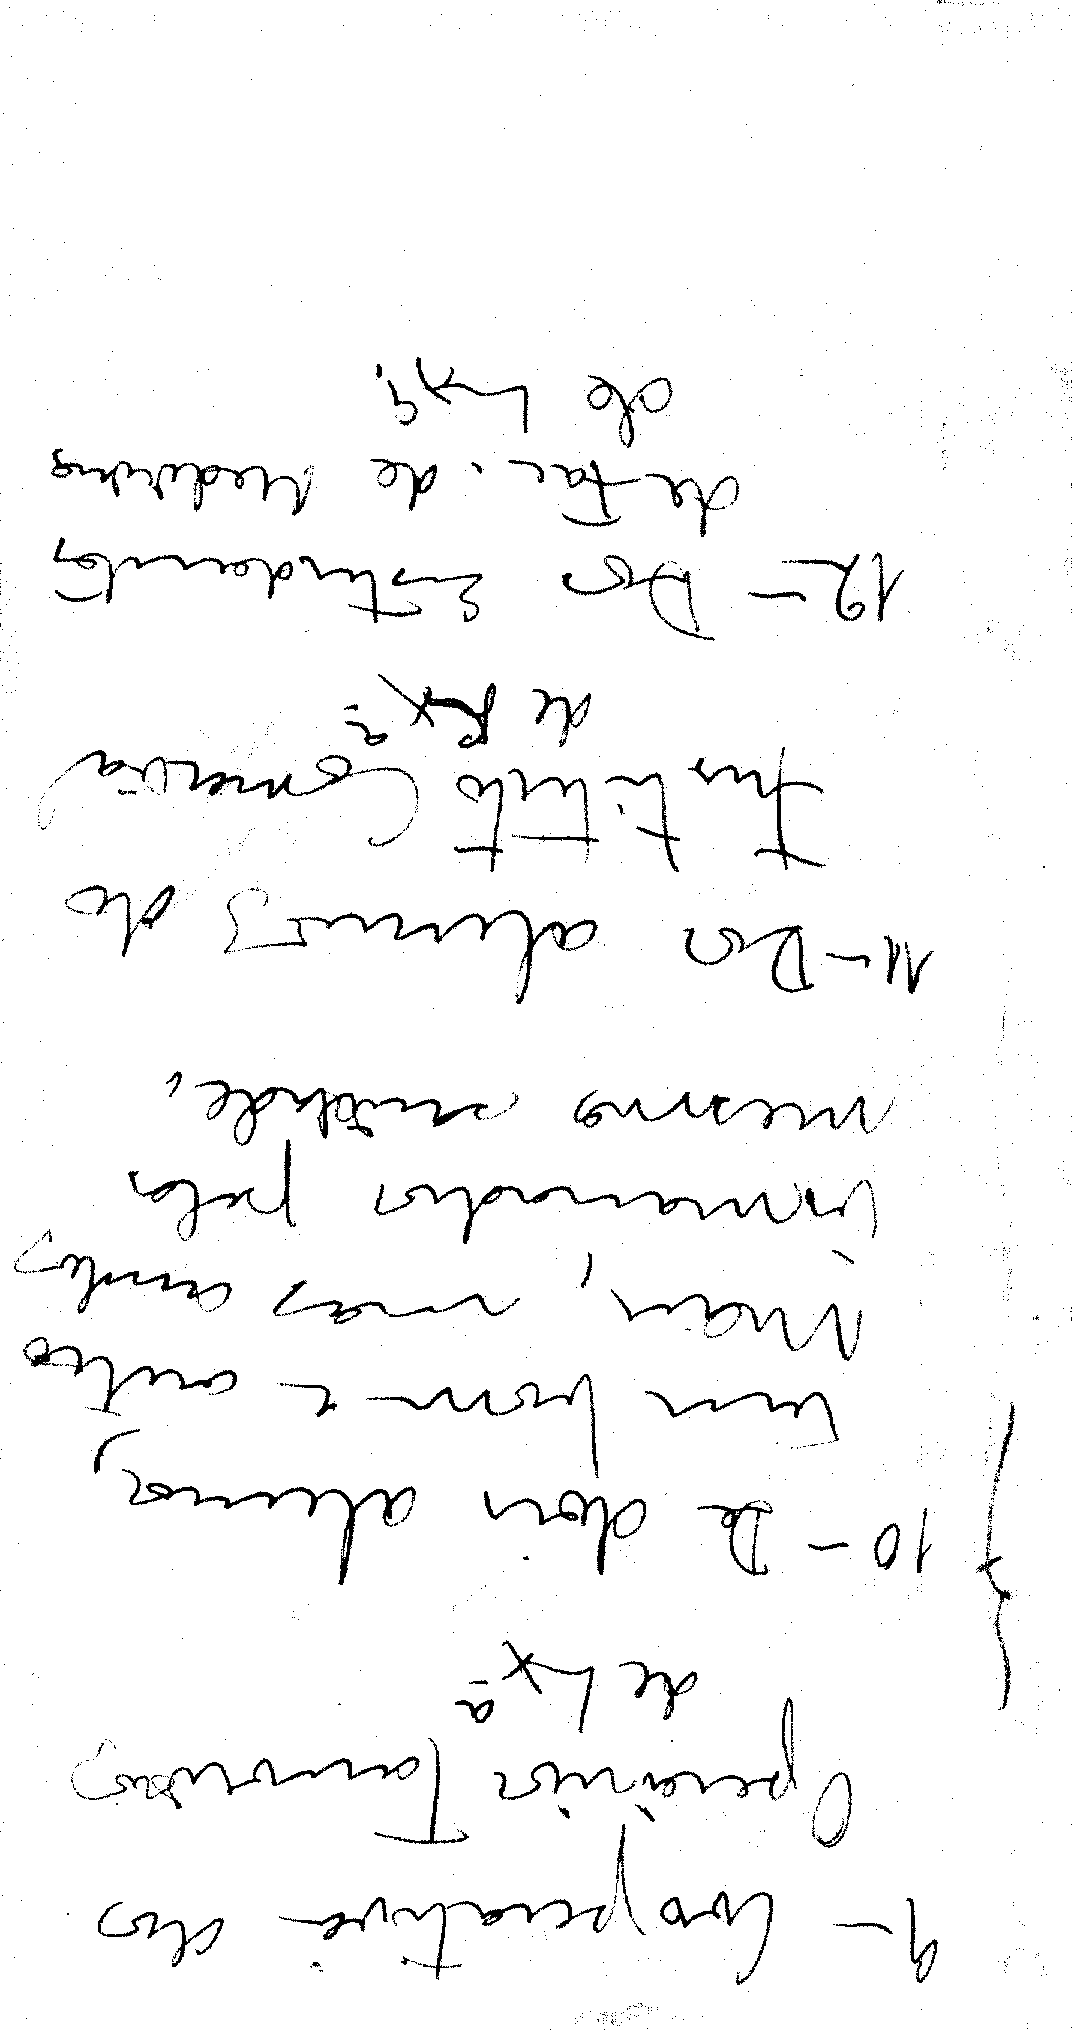 9 - Cooperativa dos
Operários Tanoeiros
de Lxª
10 - De dois alunos,
um bom e outro
mau, mas ambos
irmanados pela
mesma
11 - Dos alunos do
Instituto Comercial
de Lxª
12 - Dos Estudantes
da Fac. de Medicina
de Lxª